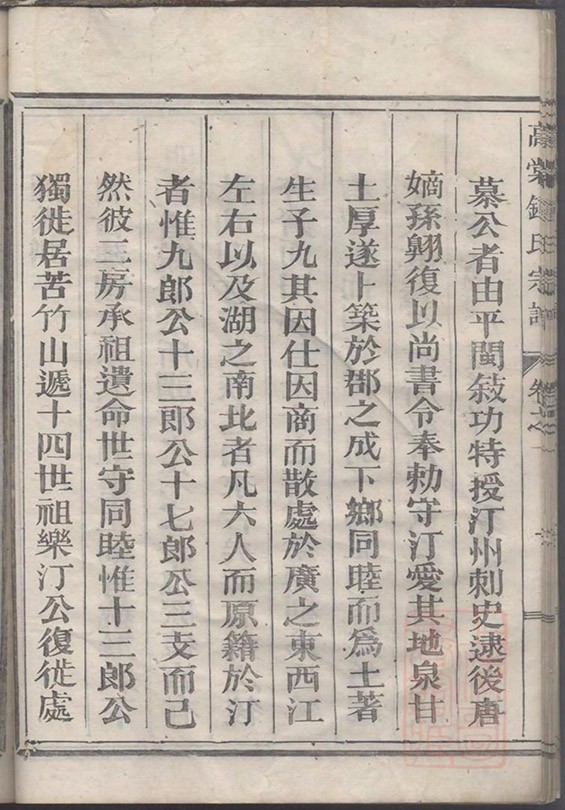 鍾氏宗譜
慕公者由平閩敍功特授汀州刺史逮後唐
嫡孫翱復以尚書令奉勅守汀愛其地泉甘
土厚遂卜築於郡之成下鄉同睦而為土著
生子九其因仕因商而散處於廣之東西江
左右以及湖之南北者凡六人而原籍於汀
者惟九郎公十三郎公十七郎公三支而己
然彼二房承祖遺命世守同睦惟十三郎公
獨徙居苦竹山遞十四世祖樂汀公復徙處